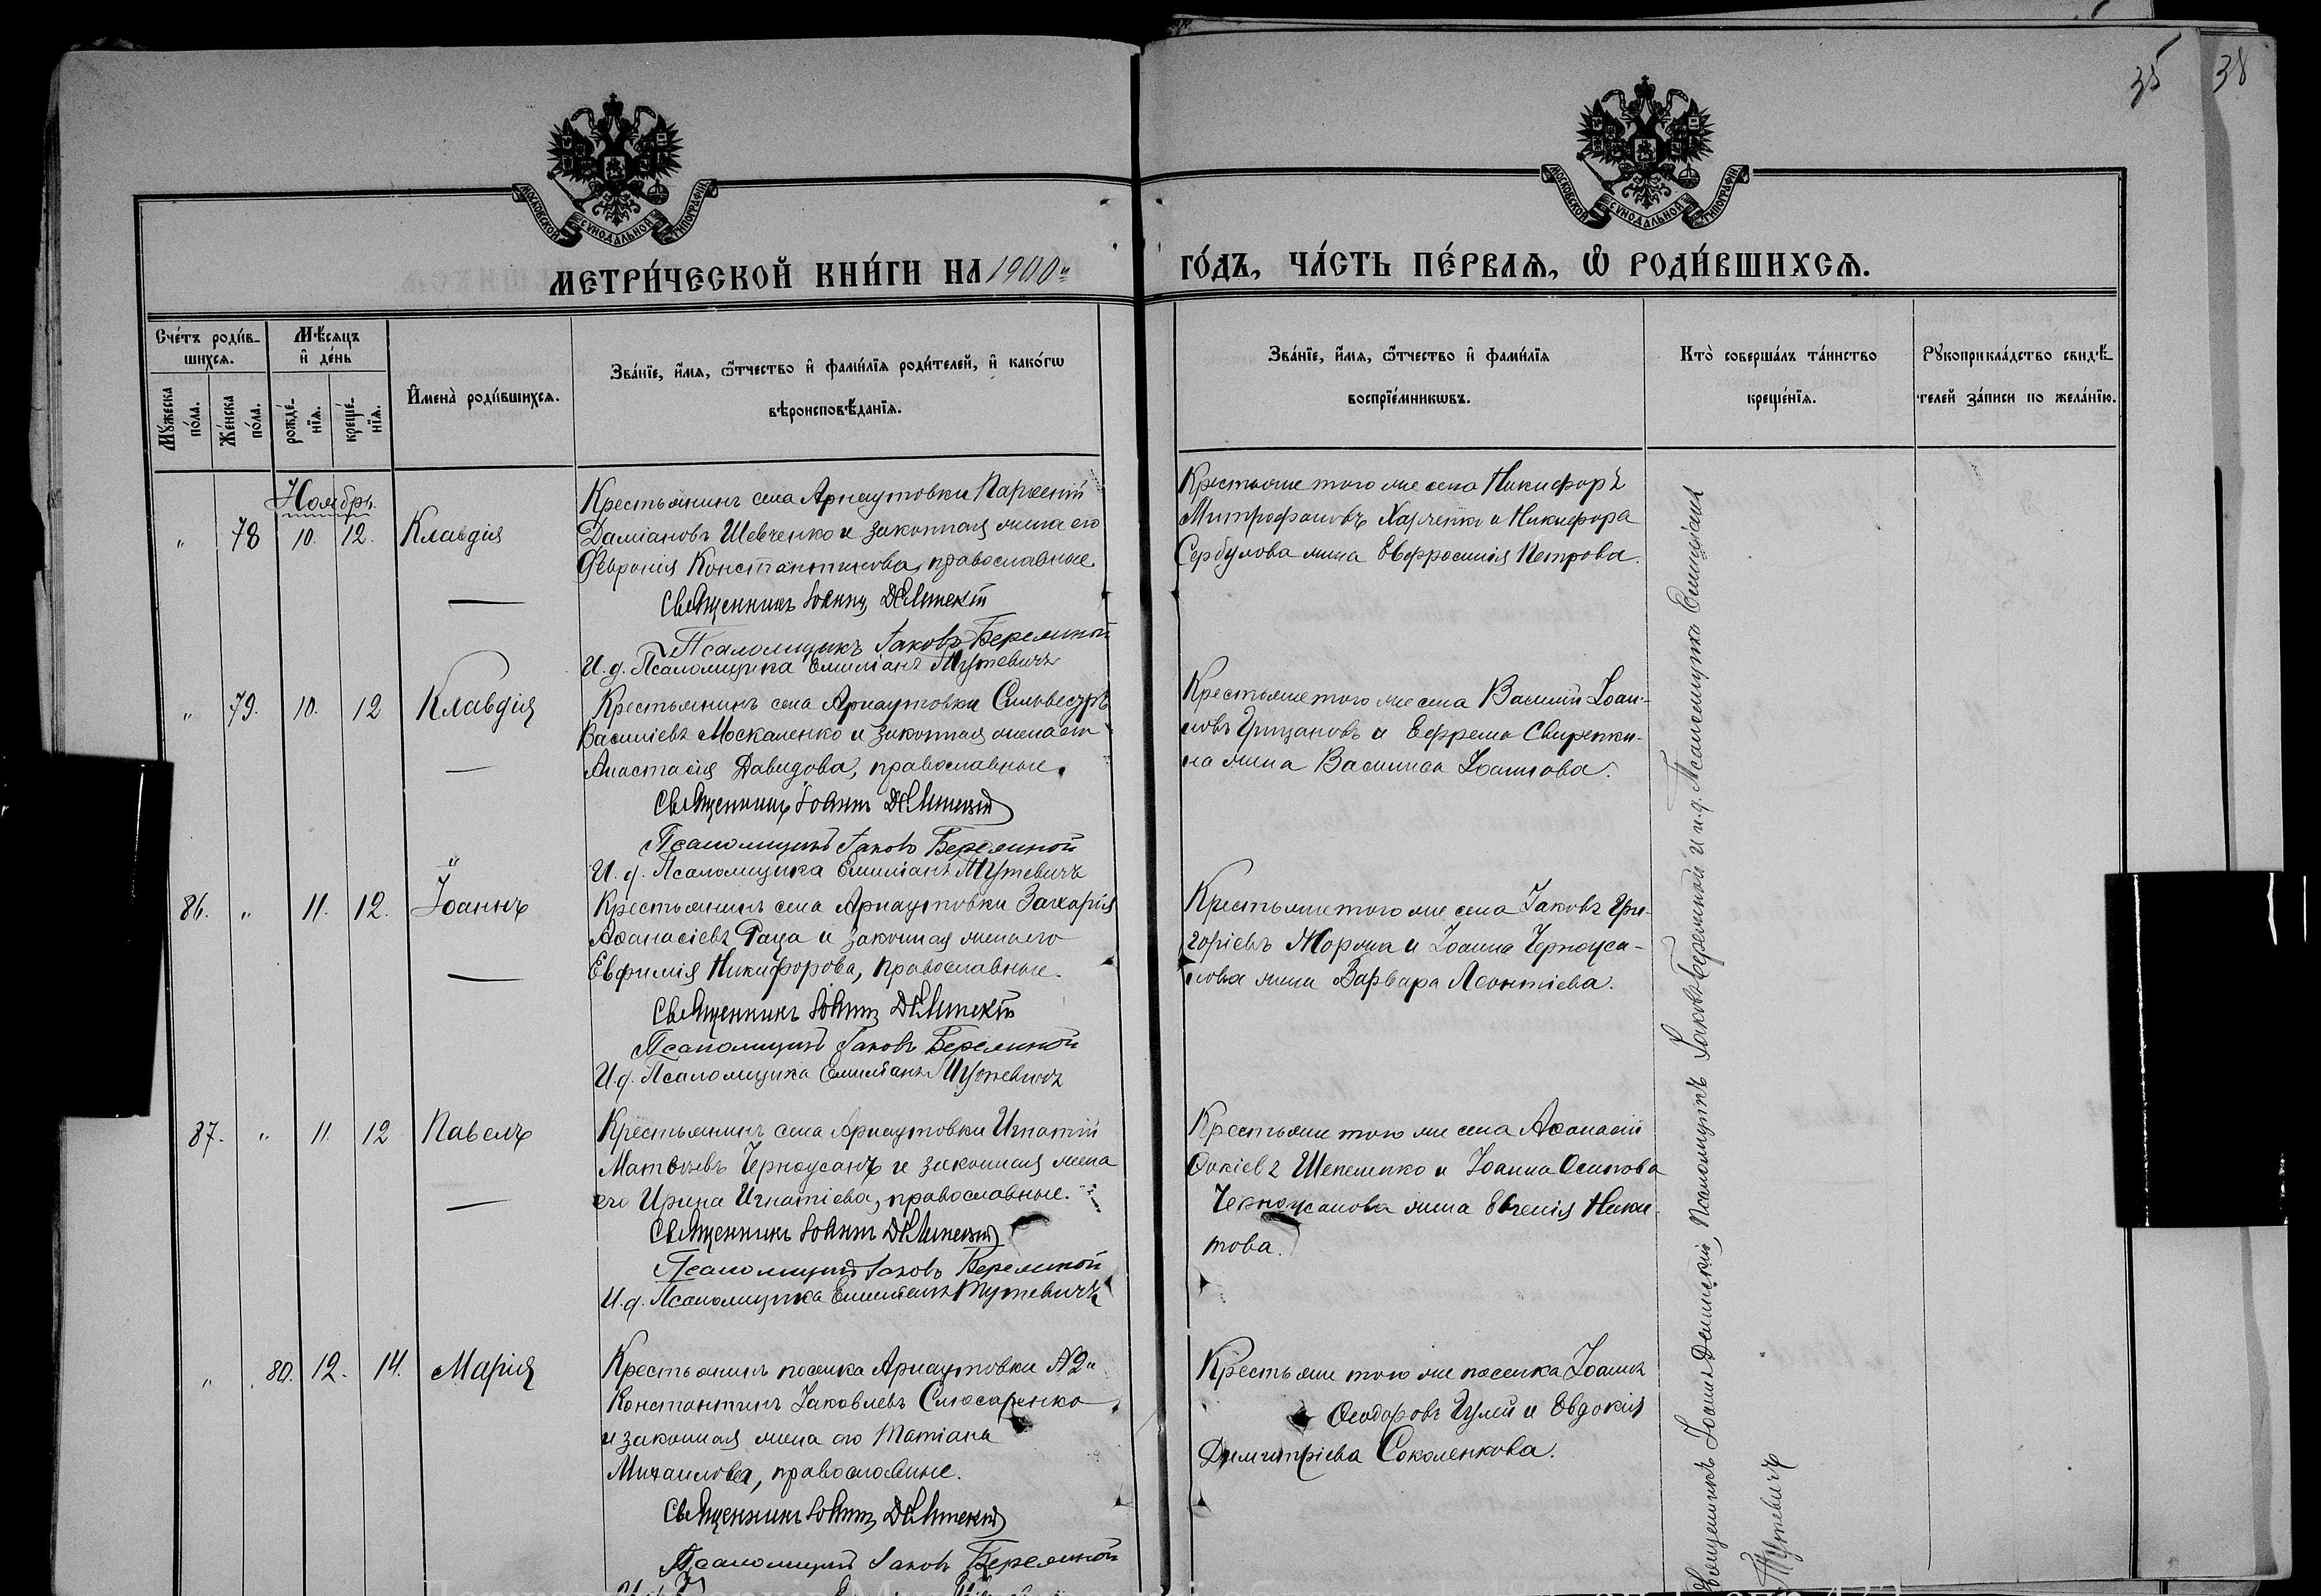 35 38
МОСКОВСКОЙ СѴНОДАЛЬНОЙ ТИПОГРАФІИ
МОСКОВСКОЙ СѴНОДАЛЬНОЙ ТИПОГРАФІИ
МЕТРИ́ЧЕСКОЙ КНИ́ГИ НА 1900й
ГО́ДЪ, ЧА́СТЬ ПЕ́РВАѦ, Ѡ҆ РОДИ́ВШИХСѦ.
Сче́тъ роди́в-
шихсѧ.
Мꙋ́жеска по́ла.
Же́нска по́ла.
Мѣ́сѧцъ
и҆ де́нь
рожде́-нїѧ.
креще́-нїѧ.
И҆мена̀ роди́вшихсѧ.
Зва́нїе, и҆́мѧ, ѻ҆́тчество и҆ фами́лїѧ роди́телей, и҆ како́гѡ
вѣроисповѣ́данїѧ.
Зва́нїе, и҆́мѧ, ѻ҆́тчество и҆ фами́лїѧ
воспрїе́мникѡвъ.
Кто̀ соверша́лъ та́инство
креще́нїѧ.
Рꙋкоприкла́дство свидѣ́-
телей за́писи по жела́нїю.
Ноябрь
" 78 10. 12. Клавдія
Крестьянинъ села Арнаутовки Парѳеній
Даміановъ Шевченко и законная жена его
Февронія Константинова, православные
Священникъ Іоаннъ Деминскій
Псаломщикъ Іаковъ Бережной
И. д. Псаломщика Емиліанъ Мутевичъ
Крестьяне того же села Никифоръ
Митрофановъ Харченко и Никифора
Сербулова жена Евфросинія Петрова.
" 79. 10. 12 Клавдія
Крестьянинъ села Арнаутовки Сильвестръ
Василіевъ Москаленко и законная жена его
Анастасія Давидова, православные.
Священникъ Іоаннъ Деминскій
Псаломщикъ Іаковъ Бережной
И. д. Псаломщика Емиліанъ Мутевичъ
Крестьяне того же села Василій Іоан-
новъ Грицановъ и Ефрема Свирепки-
на жена Василиса Іоаннова.
86. " 11. 12. Іоаннъ
Крестьянинъ села Арнаутовки Захарія
Аѳанасіевъ Гаца и законная жена его
Евфимія Никифорова, православные.
Священникъ Іоаннъ Деминскій
Псаломщикъ Іаковъ Бережной
И. д. Псаломщика Емиліанъ Мутевичъ
Крестьяне того же села Іаковъ Гри-
горіевъ Жорма и Іоанна Черноуса-
нова жена Варвара Леонтіева.
87. " 11. 12 Павелъ
Крестьянинъ села Арнаутовки Игнатій
Матѳіевъ Черноусанъ и законная жена
его Ирина Игнатіева, православные.
Священникъ Іоаннъ Деминскій
Псаломщикъ Іаковъ Бережной
И. д. Псаломщика Емиліанъ Мутевичъ
Крестьяне того же села Аѳанасій
Шепеленко и Іоанна Осипова
Черноусанова жена Евгенія Ники-
това.
" 80. 12. 14. Марія
Крестьянинъ поселка Арнаутовки №2й
Константинъ Іаковлевъ Слюсаренко
и законная жена его Татіана
Михаилова, православные.
Священникъ Іоаннъ Деминскій
Псаломщикъ Іаковъ Бережной
Крестьяне того же поселка Іоаннъ
Ѳеодоровъ Цулей и Евдокія
Димитріева Соколенкова.
Священникъ Іоаннъ Деминскій, Псаломщикъ Іаковъ Бережной и и. д. Псаломщика Емиліанъ
Мутевичъ